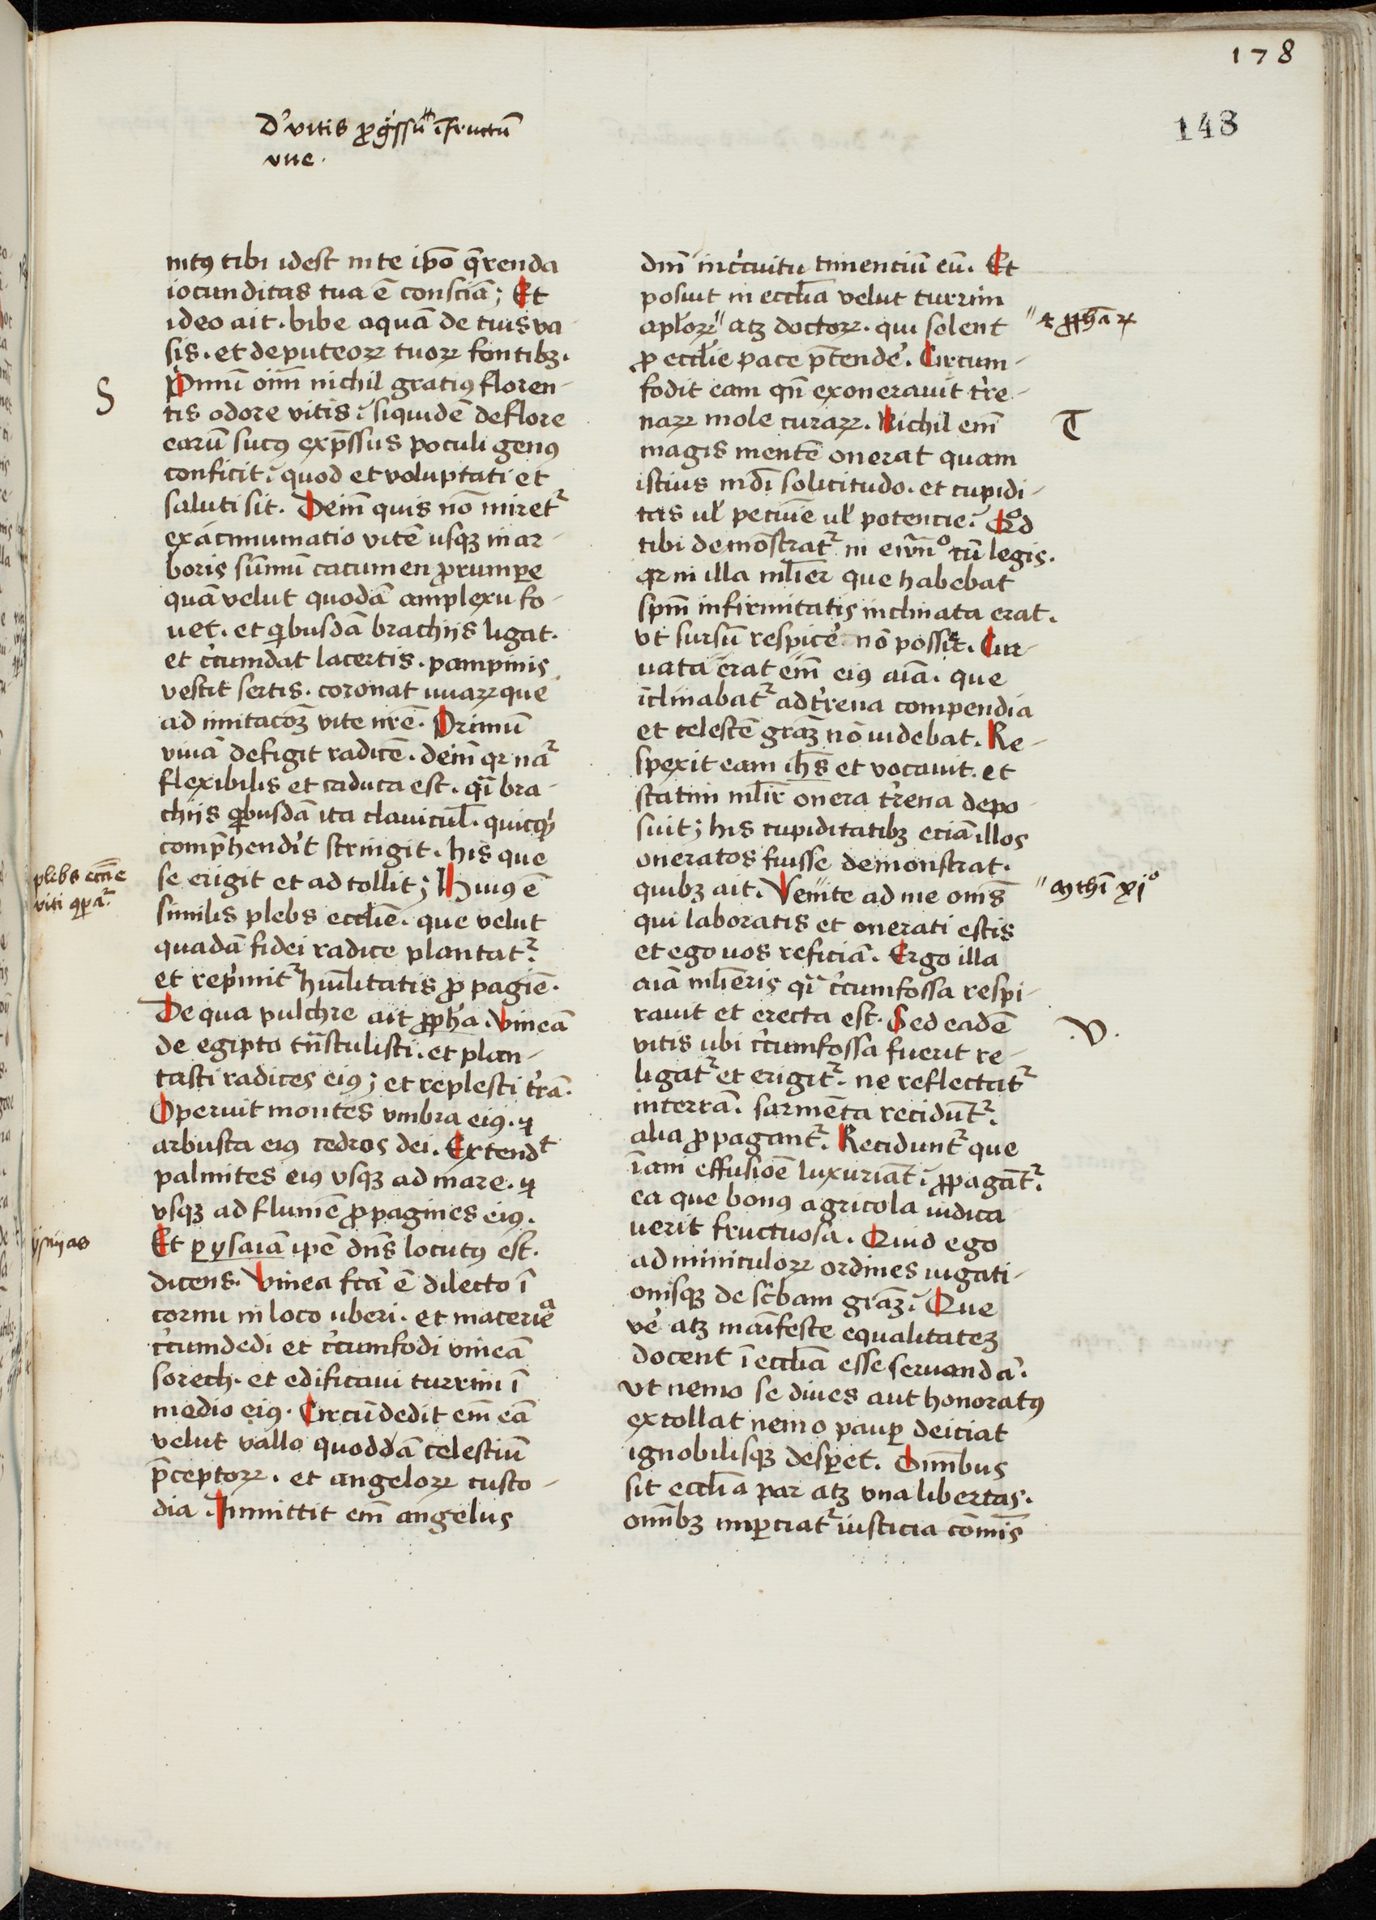 178
148
D' vitis ꝓgssū ī fructū
vue.
intꝯ tibi idest in te ip̄o q̄renda
iocunditas tua ē consciā; Et
ideo ait. bibe aquā de tuis va
sis. et de puteoꝝ tuoꝝ fontibꝫ.
S
Pnnū oīm nichil gratiꝯ floren-
tis odore vitis: siquidē de flore
earū sucꝯ exp̄ssus poculi genꝯ
conficit: quod et voluptati et
saluti sit. Dein̄ quis nō miretᷣ
ex acinu natio vitē usqꝫ in ar-
boris sūmū cacumen ꝓrumpe
quā velut quodā amplexu fo-
uet. et qͥbusdā brachiis ligat.
et c̄cumdat lacertis. pampinis
vestit sertis. coronat uuaꝝ que
ad imitacōꝫ vite nr̄e. Primū
viuā defigit radicē. dein̄ qꝛ naᷣ
flexibilis et caduca est. qͣi bra-
chiis qͥbusdā ita clauicul̄. quicqͥd
comp̄hendit stringit. his que
plebs eccīe
viti ꝯpaᷣ.
se erigit et ad tollit; Huiꝯ ē
similis plebs eccl̄ie. que velut
quadā fidei radice plantatᷣ.
et rep̄mitᷣ hūilitatis ꝓ pagiē.
De qua pulchre ait ꝓph̄a. Vineā
de egipto tn̄stulisti. et plan-
tasti radices eiꝯ; et replesti t'rā.
Operuit montes vmbra eiꝯ. ꝗ
arbusta eiꝯ cedros dei. Extendᵗ
palmites eiꝯ vsqꝫ ad mare. ꝗ
vsqꝫ ad flumē ꝓpagines eiꝯ.
ysaias
Et ꝑ ysaiam ip̄e dn̄s locutꝯ est.
dicens. Vinea fcā ē dilecto ī
cornu in loco uberi. et maceriē
c̄cumdedi et c̄cumfodi vineā
sorech. et edificaui turrim ī
medio eiꝯ. Circūdedit em̄ eā
velut vallo quoddā celestiū
p̄ceptoꝝ. et angeloꝝ custo-
dia. Inmittit em̄ angelus
dn̄s in c̄cuitu timenciū eū. Et
posuit in eccl̄ia velut turrim
apl̄oꝝ" atꝫ doctoꝝ. qui solent
" ⁊ ꝓph̄aꝝ
ꝓ eccl̄ie pace p̄tende'. Circum-
fodit eam qn̄ exonerauit t're-
naꝝ mole curaꝝ. Nichil em̄
T
magis mentē onerat quam
istius mdī solicitudo. et cupidi-
tas ul̄ pecunie ul̄ potencie. Qͦd
tibi demōstratᷣ in ewn̄ᵒ cū legis.
qꝛ in illa ml̄ier que habebat
sp̄m infirmitatis inclinata erat.
vt sursū respice' nō possit. Cur-
uata erat em̄ eiꝯ aīa. que
īclinabatᷣ ad t'rena compendia
et celestē graꝫ nō uidebat. Re-
spexit eam ih̄s et vocauit. et
statim ml̄ier onera t'rena depo-
suit; his cupiditatibꝫ eciā illos
oneratos fuisse demonstrat.
quibꝫ ait. Venite ad me om̄s
" Mathī xiᵒ
qui laboratis et onerati estis
et ego uos reficiā. Ergo illa
aīa ml̄ieris qͣi c̄cumfossa respi-
rauit et erecta est. Sed eadē
.V.
vitis ubi c̄cumfossa fuerit re-
ligatᷣ et erigitᷣ. ne reflectatᷣ
in terrā. sarmēta recidūtᷣ.
alia ꝓpagantᷣ. Recidūntᷣ que
īani effusiōe luxuriāt: ꝓpagātᷣ.
ea que bonꝯ agricola iudica
uerit fructuosa. Quid ego
adminiculoꝝ ordines iugati-
onisqꝫ describam graꝫ. Que
ve' atꝫ māifeste equalitateꝫ
docent ī eccl̄ia esse seruandā.
Vt nemo se diues aut honoratꝯ
extollat nemo pauꝑ deiciat
ignobilisqꝫ desꝑet. Om̄ibus
sit eccl̄ia par atꝫ vna libertas.
om̄ibꝫ imꝑciatᷣ iusticia cōmīs